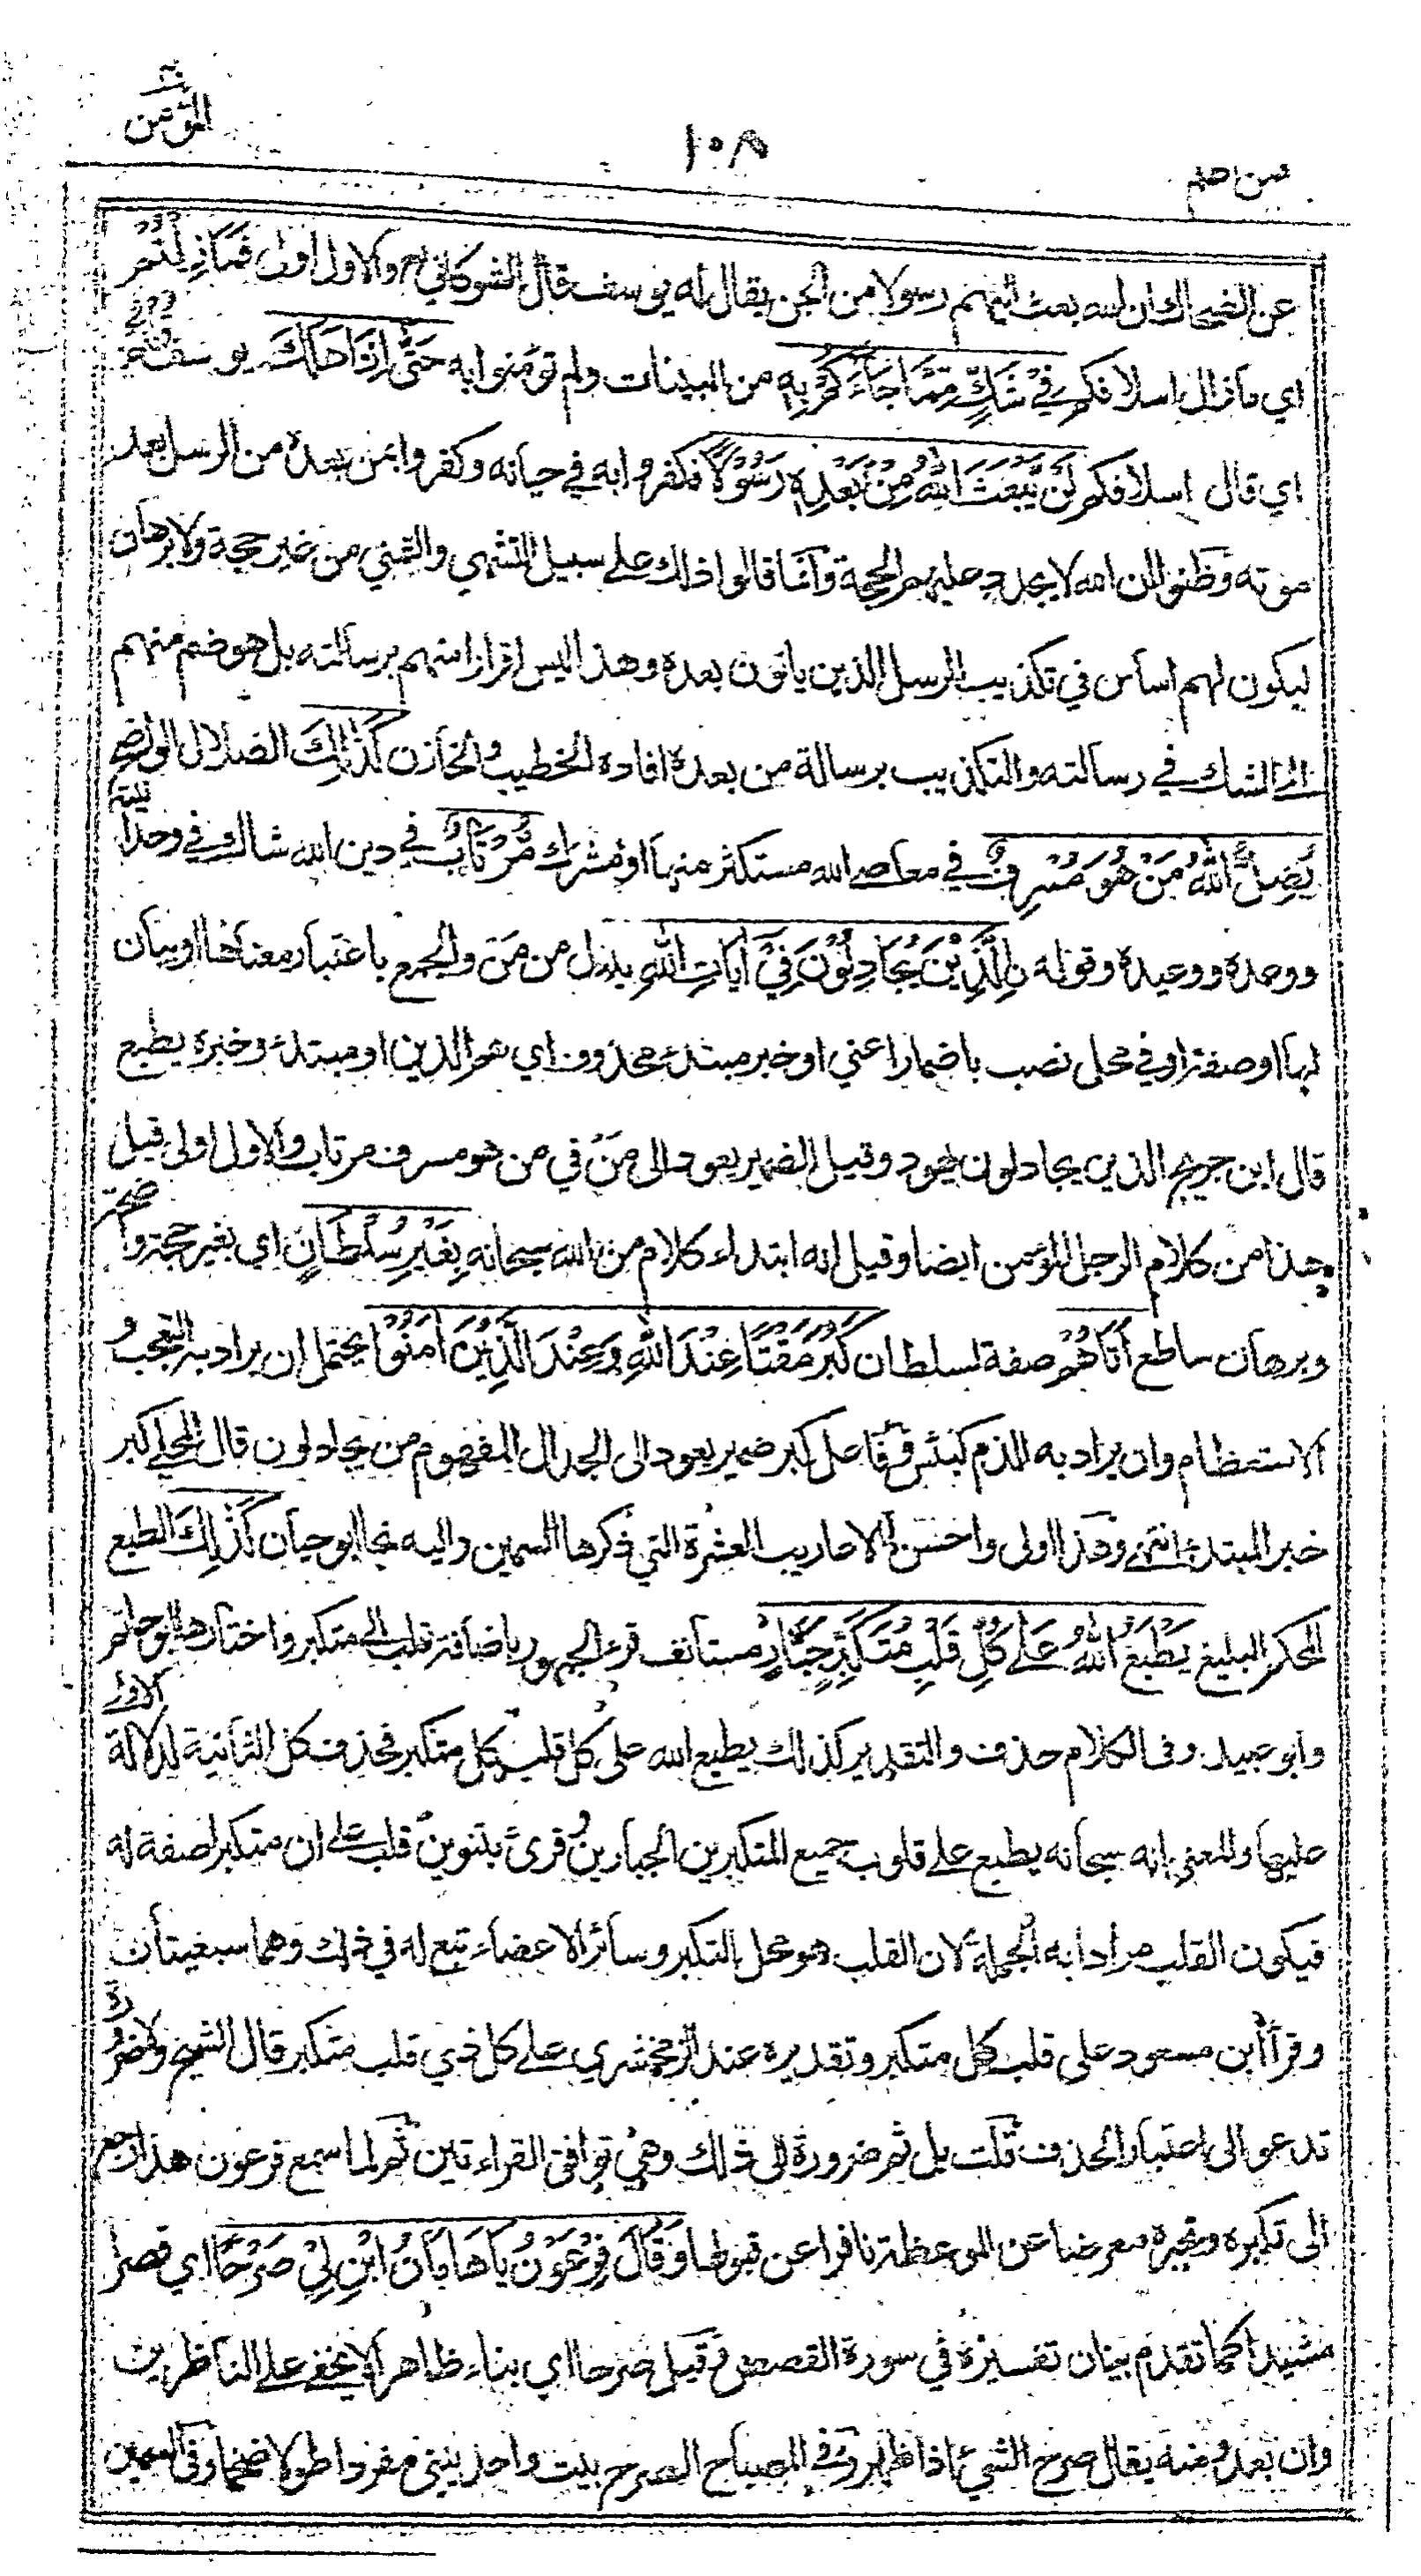 المؤمن
١٠٨
فمن اظلم
عن الضحاك ان الله بعث اليهم رسولا من الجن يقال له يوسف قال الشوكاني رح والاول اولى فَمَا زِلْتُمْ
اي ما زال اسلافكم فِيْ شَكٍّ مِّمَّا جَاءَكُمْ بِهٖ من البينات ولم تؤمنوا به حَتّٰى اِذَا هَلَكَ يوسف قُلْتُمْ
اي قال اسلافكم لَنْ يَّبْعَثَ اللّٰهُ مِنْ بَعْدِهٖ رَسُوْلًا فكفروا به في حياته وكفروا بمن بعده من الرسل بعد
موته وظنوا ان الله لا يجدد عليهم الحجة وانما قالوا ذلك على سبيل التشهي والتمني من غير حجة ولا برهان
ليكون لهم اساس في تكذيب الرسل الذين يأتون بعده وهذا ليس اقرارا منهم برسالته بل هو ضم منهم
الى الشك في رسالته والتكذيب برسالة من بعده افاده الخطيب والخازن كَذٰلِكَ الضلال الواضح
يُضِلُّ اللّٰهُ مَنْ هُوَ مُسْرِفٌ في معاصي الله مستكثر منها او مشرك مُّرْتَابٌ في دين الله شاك في وحدانيته
ووعده ووعيده وقوله نِ الَّذِيْنَ يُجَادِلُوْنَ فِيْ اٰيَاتِ اللّٰهِ بدل من مَن والجمع باعتبار معناها او بيان
لها او صفة او في محل نصب باضمار اعني او خبر مبتدء محذوف اي هم الذين او مبتدء وخبره يطبع
قال ابن جريج الذين يجادلون اليهود وقيل الضمير يعود الى مَنْ في من هو مسرف مرتاب والاول اولى قيل
هذا من كلام الرجل المؤمن ايضا وقيل انه ابتداء كلام من الله سبحانه بِغَيْرِ سُلْطَانٍ اي بغير حجة واضحة
وبرهان ساطع اَتَاهُمْ صفة لسلطان كَبُرَ مَقْتًا عِنْدَ اللّٰهِ وَعِنْدَ الَّذِيْنَ اٰمَنُوْا يحتمل ان يراد به التعجب و
الاستعظام وان يراد به الذم كبئس وفاعل كبر ضمير يعود الى الجدال المفهوم من يجادلون قال المحلي كبر
خبر المبتدء انتهى وهذا اولى واحسن الاعاريب العشرة التي ذكرها السمين واليه نحا ابو حيان كَذٰلِكَ الطبع
المحكم البليغ يَطْبَعُ اللّٰهُ عَلٰى كُلِّ قَلْبِ مُتَكَبِّرٍ جَبَّارٍ مستأنف قرء الجمهور باضافة قلب الى متكبر واختارها ابو حاتم
وابو عبيد وفي الكلام حذف والتقدير كذلك يطبع الله على كل قلب كل متكبر فحذف كل الثانية لدلالة الاولى
عليها والمعنى انه سبحانه يطبع على قلوب جميع المتكبرين الجبارين وقرئ بتنوين قلب على ان متكبر صفة له
فيكون القلب مرادا به الجملة لان القلب هو محل التكبر وسائر الاعضاء تبع له في ذلك وهما سبعيتان
وقرأ ابن مسعود على قلب كل متكبر وتقديره عند الزمخشري على كل ذي قلب متكبر قال الشيخ ولا ضرورة
تدعو الى اعتبار الحذف قلت بل ثم ضرورة الى ذلك وهي توافق القراءتين ثم لما سمع فرعون هذا رجع
الى تكبره وتجبره معرضا عن الموعظة نافرا عن قبولها وَقَالَ فِرْعَوْنُ يَا هَامَانُ ابْنِ لِيْ صَرْحًا اي قصرا
مشيدا كما تقدم بيان تفسيره في سورة القصص وقيل صرحا اي بناء ظاهرا لا يخفى على الناظرين
وان بعد ومنه يقال صرح الشيء اذا ظهر وفي المصباح الصرح بيت واحد يبنى مفردا طولا ضخما وفي السمين